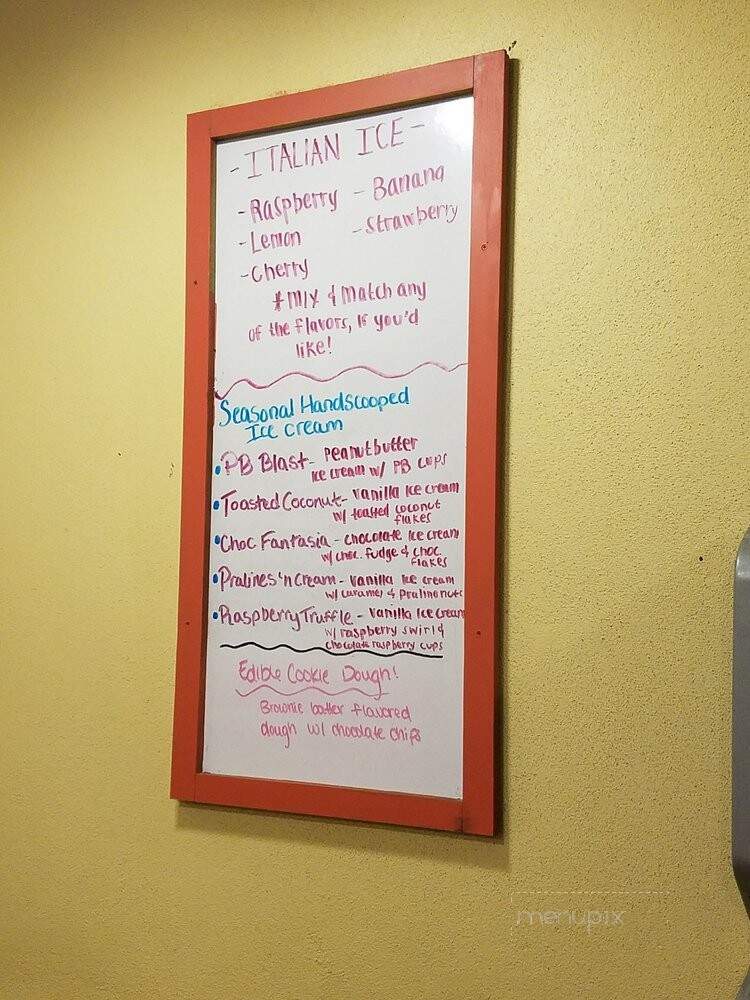 - ITALIAN ICE -
- Raspberry - Banana
- Lemon - Strawberry
- Cherry
* Mix & Match any
of the flavors, If you'd
like!
Seasonal Handscooped
Ice cream
• PB Blast - Peanutbutter
Ice cream w/ PB cups
• Toasted Coconut - Vanilla Ice cream
w/ toasted coconut
flakes
• Choc Fantasia - chocolate Ice cream
w/ choc. fudge & choc
flakes
• Pralines 'n cream - Vanilla Ice cream
w/ caramel & praline nuts
• Raspberry Truffle - Vanilla Ice cream
w/ raspberry swirl &
chocolate raspberry cups
Edible Cookie Dough!
Brownie batter flavored
dough w/ chocolate chips
menupix